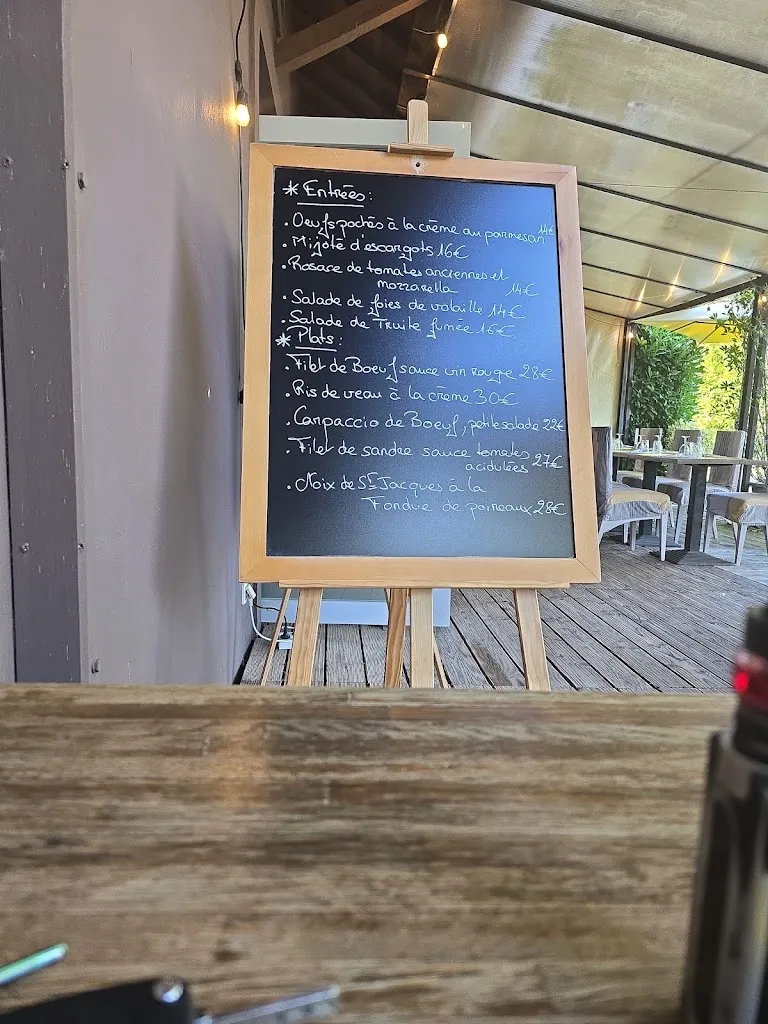 * Entrées :
. Oeufs pochés à la crème au parmesan 14€
. Mijoté d'escargots 16€
. Rosace de tomates anciennes et
mozzarella 14€
. Salade de foies de volaille 14€
. Salade de Truite fumée 16€.
* Plats :
. Filet de Boeuf sauce vin rouge 28€
. Ris de veau à la crème 30€
. Carpaccio de Boeuf, petite salade 22€
. Filet de sandre sauce tomates
acidulées 27€
. Noix de St Jacques à la
Fondue de poireaux 28€